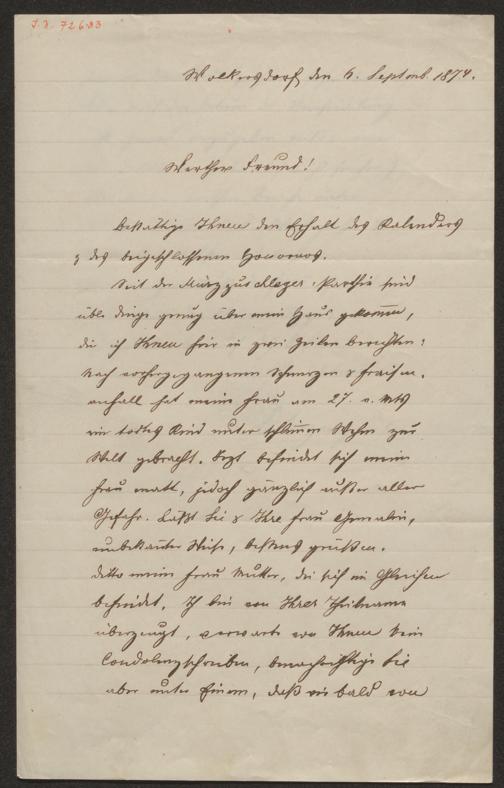 I.N. 72693
Wolkersdorf, den 6. Septemb. 1874.
Werther Freund!
bestättige Ihnen den Erhalt des Kalenders
& des beigeschlossenen Honorares.
Seit der Mürzzuschlager-Parthie sind
üble Dinge genug über mein Haus gekommen,
die ich Ihnen hier in zwei Zeilen berichte:
Nach vorhergegangenen Schmerzen & Fraisen-
anfall hat meine Frau am 27. v. Mts
ein todtes Kind unter schlimmen Wehen zur
Welt gebracht. Jetzt befindet sich meine
Frau matt, jedoch gänzlich außer aller
Gefahr. Läßt Sie & Ihre Frau Gemalin,
unbekannter Weise, bestens grüßen.
ditto meine Frau Mutter, die sich im Gleichen
befindet. Ich bin von Ihrer Theilname
überzeugt, erwarte von Ihnen kein
Condolenzschreiben, benachrichtige Sie
aber unter Einem, daß wir bald von